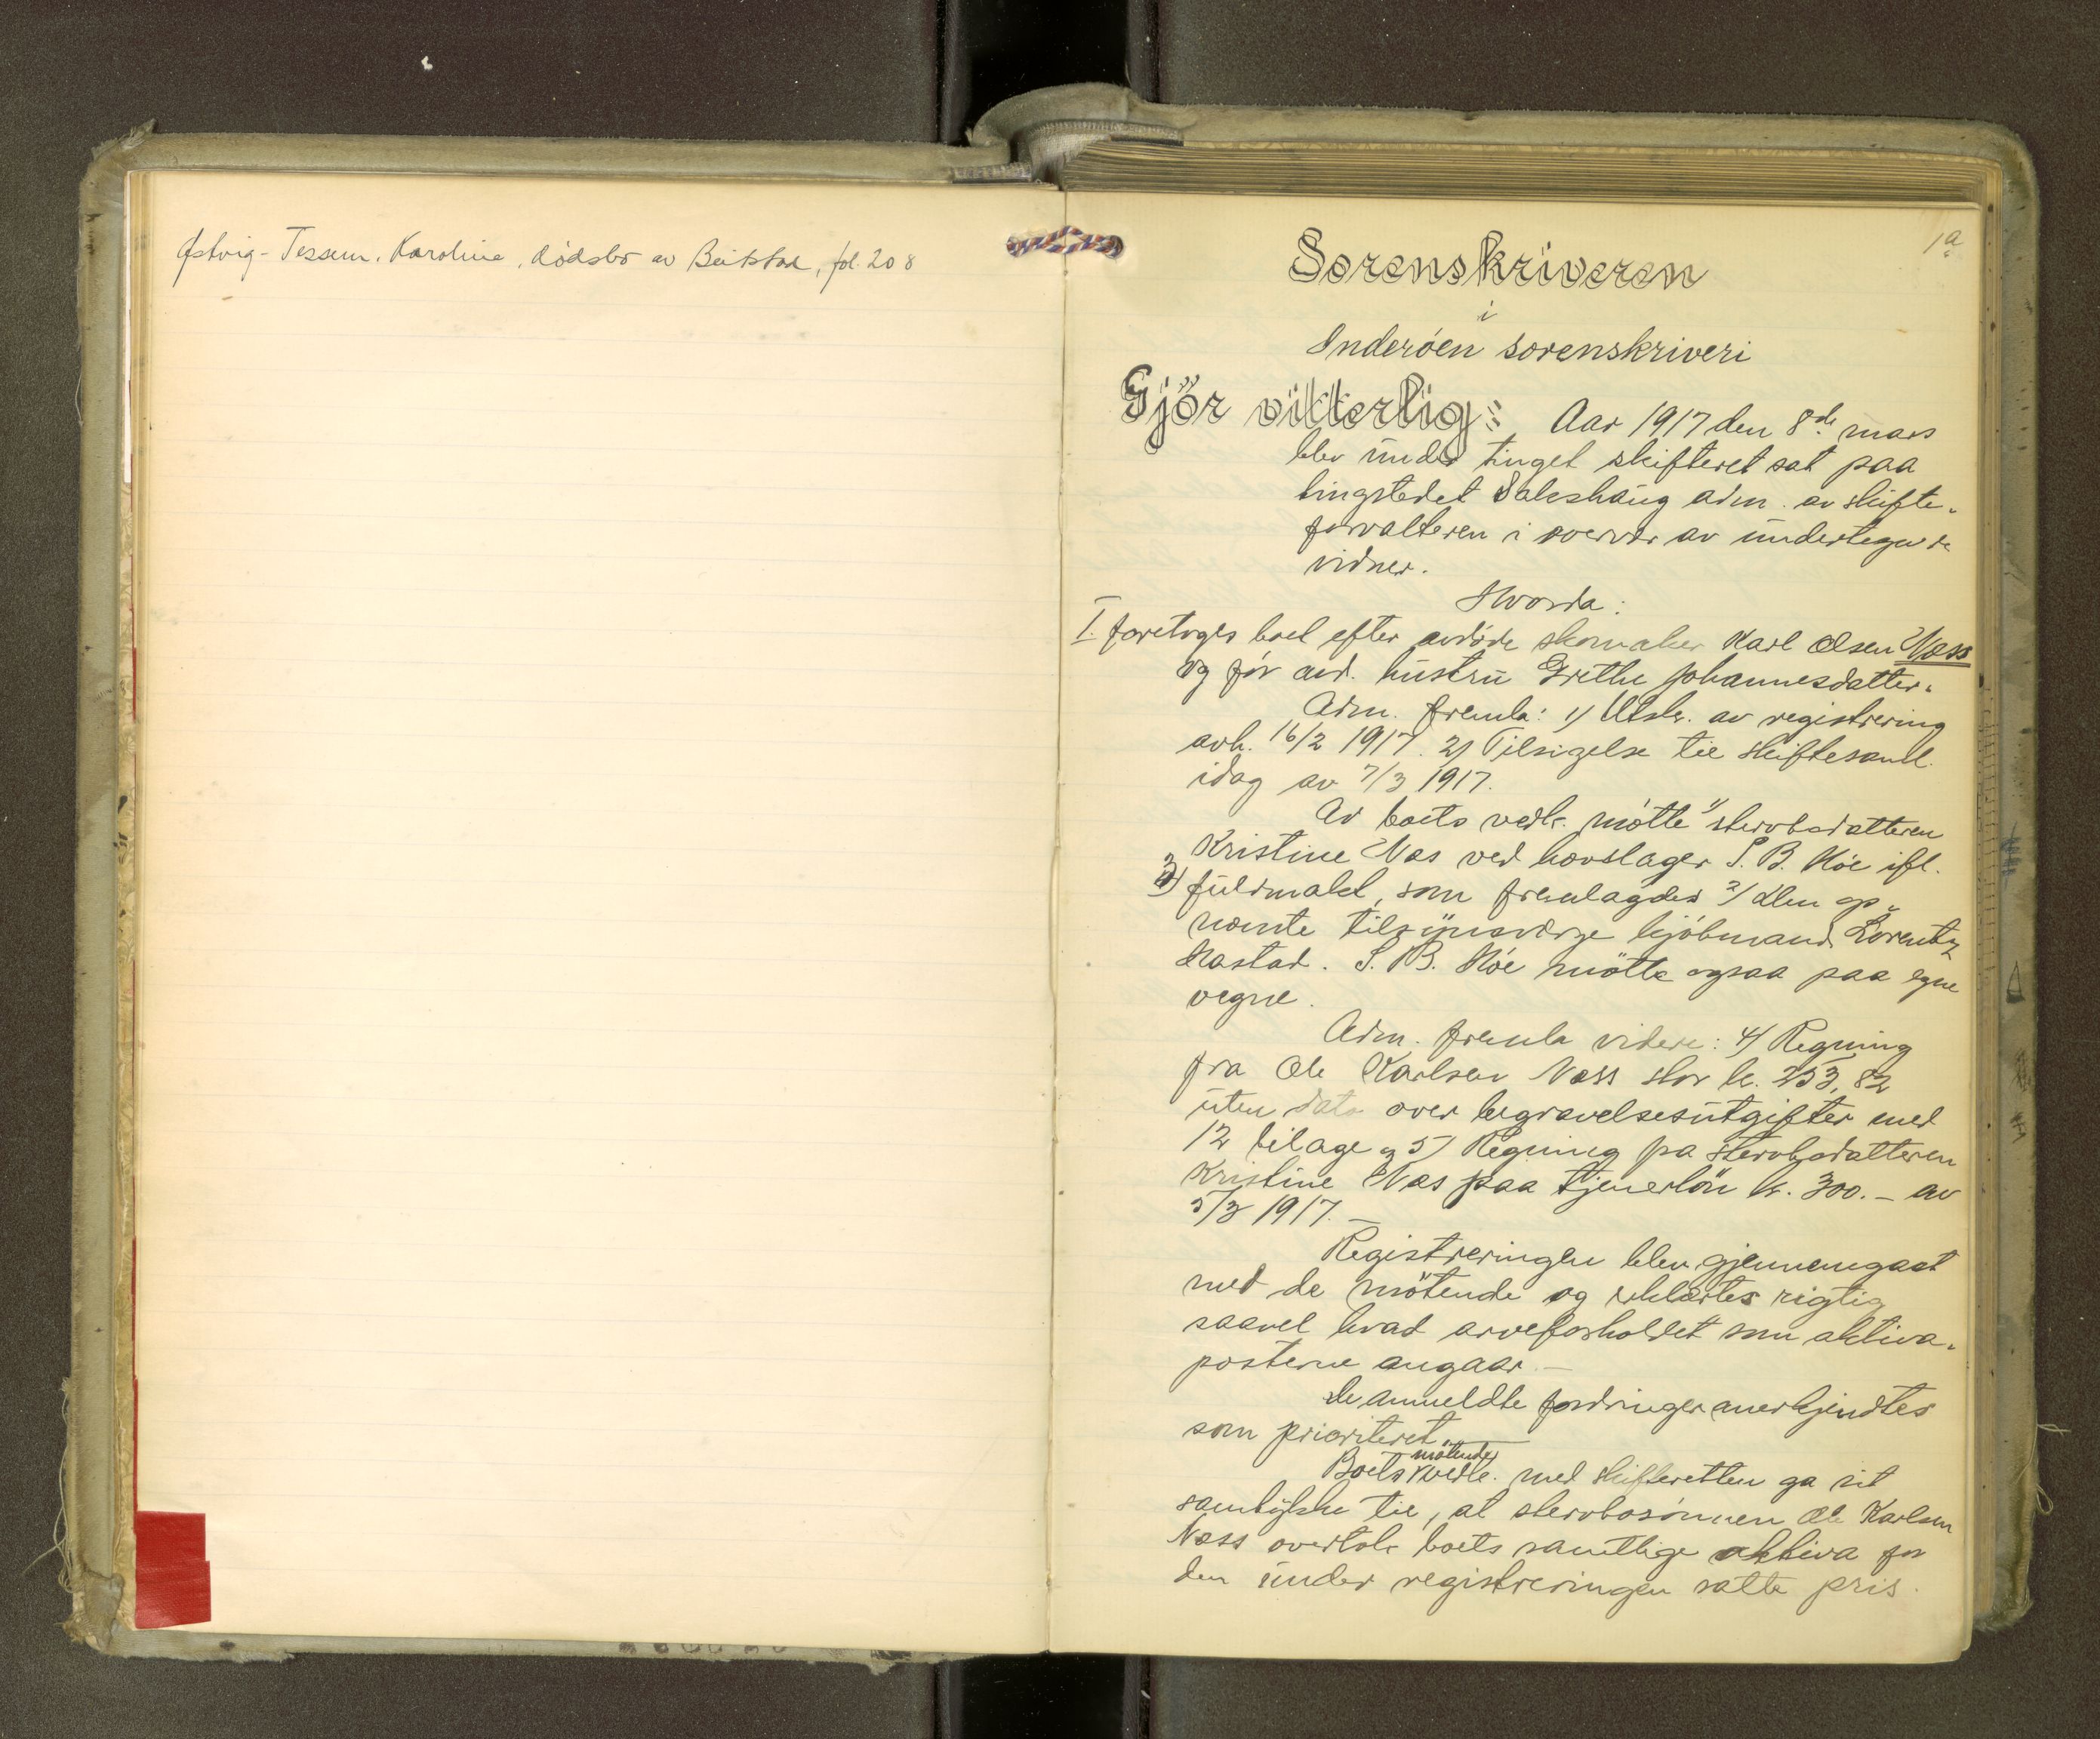 Østvig-Tessem, Karoline, dødsbo av Beitstad, fol. 208
1a
Sorenskriveren
i
Inderøen sorenskriveri
Gjør vitterlig: Aar 1917 den 8de mars
blev under tinget skifteret sat paa
tingstedet Sakshaug adm. av skifte-
forvalteren i overvær av undertegnede
vidner.
Hvorda:
I. foretoges boet efter avdøde skomaker Karl Olsen Næss
og før avd. hustru Grethe Johannesdatter.
Adm. fremla: 1) Utskr. av registrering
avh. 16/2 1917. 2) Tilsigelse til skiftesaml.
idag av 7/3 1917.
Av boets vedk. møtte 1) stervbodatteren
Kristine Næs ved hovslager S. B. Høe ifl.
3) fuldmakt, som fremlagdes 2) den op-
nævnte tilsynsværge kjøbmand Lorentz
Hastad. S. B. Høe møtte ogsaa paa egne
vegne.
Adm. fremla videre: 4) Regning
fra Ole Karlsen Næss stor kr. 253,82
uten dato over begravelsesutgifter med
12 bilage og 5) Regning fra stervbodatteren
Kristine Næs paa tjenerløn kr. 300.- av
5/3 1917. —
Registreringen blev gjennemgaat
med de møtende og erklærtes rigtig
saavel hvad arveforholdet som aktiva-
posterne angaar. —
De anmeldte fordringer anerkjendtes
som prioriteret. —
møtende
Boets vedk. med skifteretten ga sit
samtykke til, at stervbosønnen Ole Karlsen
Næss overtok boets samtlige aktiva for
den under registreringen satte pris.